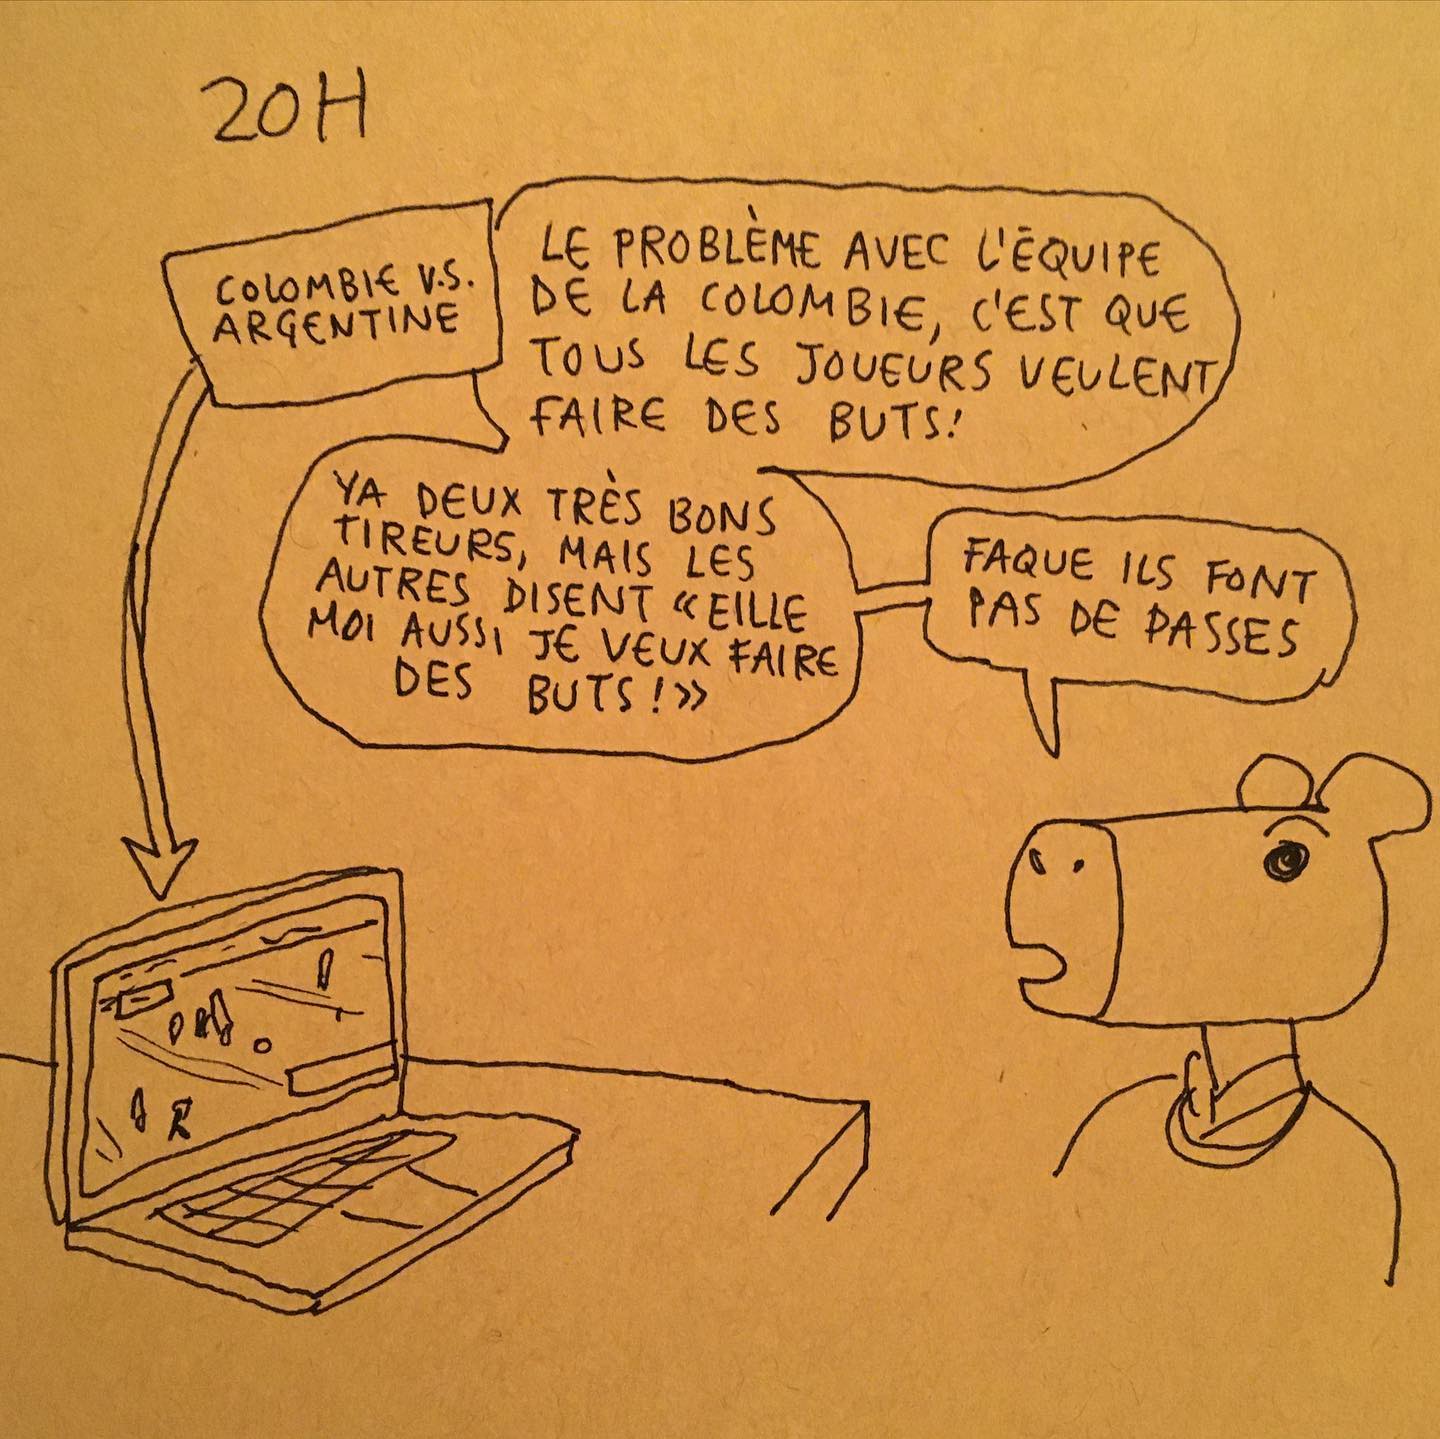 20H
COLOMBIE V.S.
ARGENTINE
LE PROBLÈME AVEC L'ÉQUIPE
DE LA COLOMBIE, C'EST QUE
TOUS LES JOUEURS VEULENT
FAIRE DES BUTS!
YA DEUX TRÈS BONS
TIREURS, MAIS LES
AUTRES DISENT «EILLE
MOI AUSSI JE VEUX FAIRE
DES BUTS!»
FAQUE ILS FONT
PAS DE PASSES